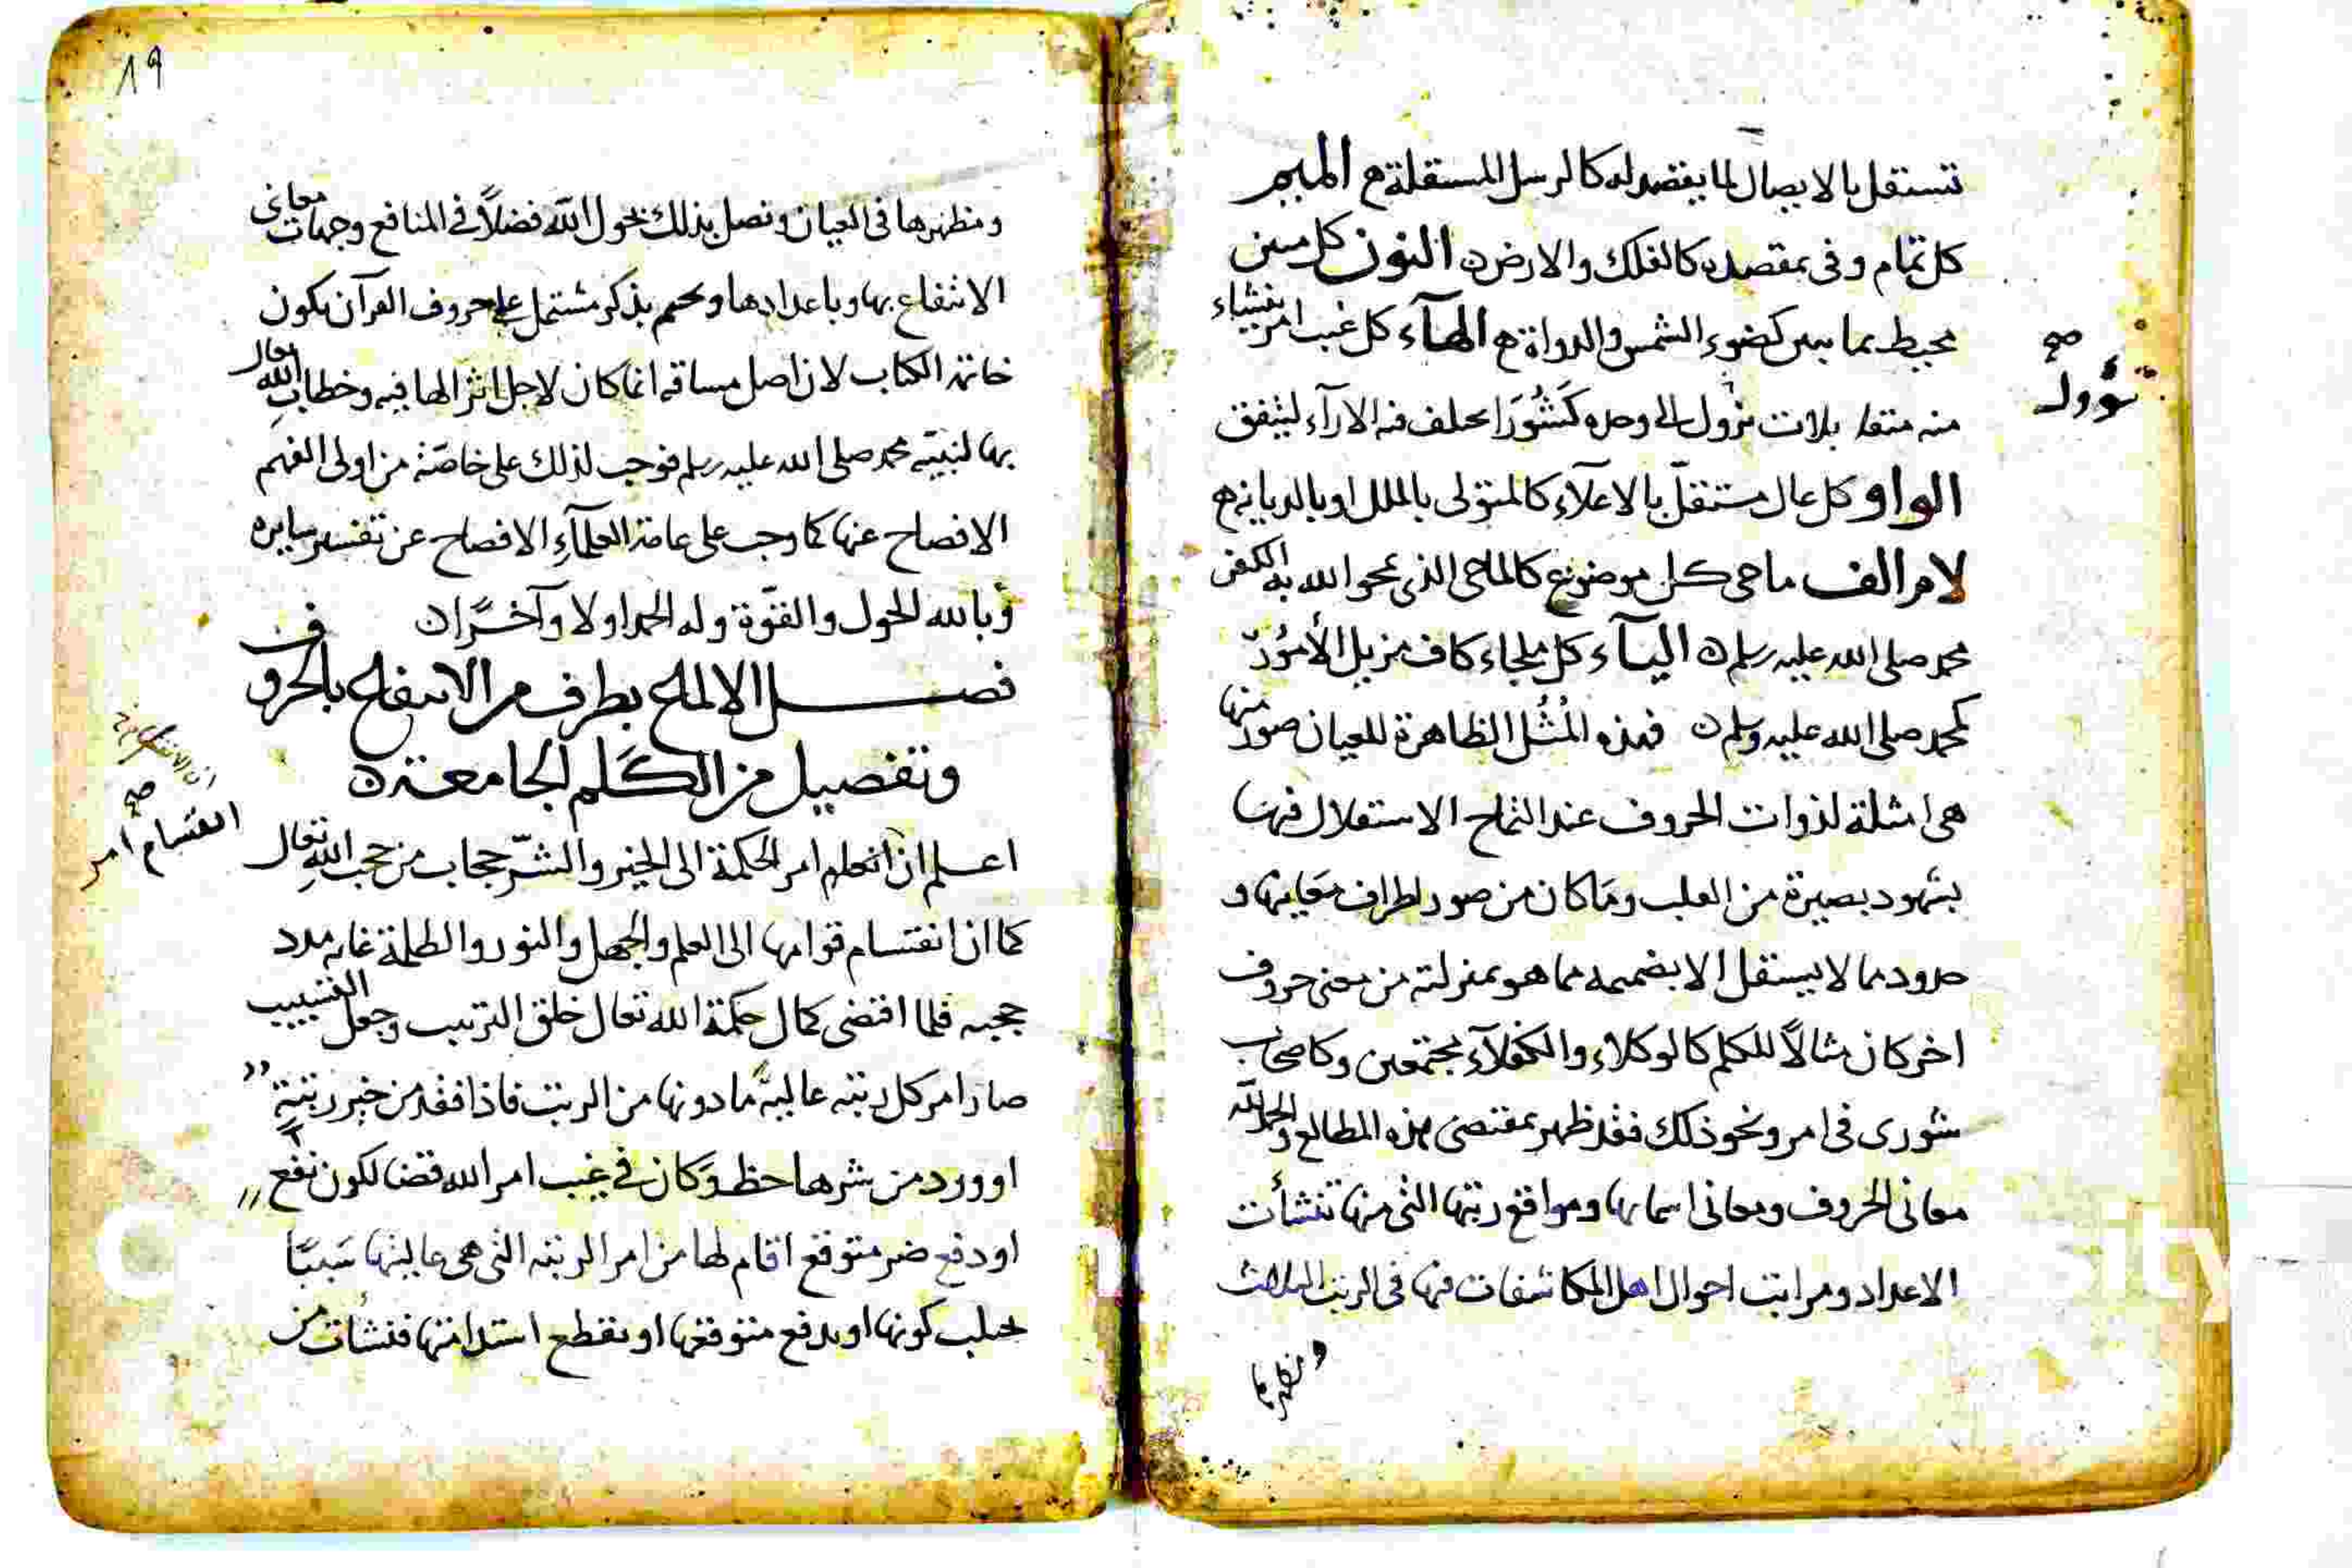 تستقل بالايصال لما يقصد له كالرسل المستقلة ه الميم
كل تمام وفى بمقصده كالفلك والارض ه النون كل مبين
محيط بما يبين كضوء الشمس والدواة ه الهآء كل غيب امر ينشاء
صح
تؤول
منه متقابلات تؤول الى وحده كشورا يختلف فيه الارآء ليتفق
الواو كل عال مستقل بالاعلآء كالمتولى بالملل او بالديانه ه
لام الف ماحى كل موضوع كالماحى الذى يمحوا الله به الكفر
محمد صلى الله عليه وسلم ه اليآء كل ملجاء كاف مزيل الأمور
كمحمد صلى الله عليه وسلم ه فهذه المثل الظاهرة للعيان صور منها
هى امثلة لذوات الحروف عند التماح الاستقلال فيها
بشهود بصيرة من القلب وما كان من صور اطراف معاينها و
حدود مما لا يستقل الا بضميمه مما هو بمنزلته من معنى حروف
اخر كان مثالا للكلم كالوكلاء والكفلآء مجتمعين وكاصحاب
شورى فى امر ونحو ذلك فقد ظهر بمقتضى هذه المطالع والحمد لله
معانى الحروف ومعانى اسمايها ومواقع رتبها التى منها تنشأت
الاعداد ومراتب احوال اهل المكاشفات فيها فى الرتب الثلاث
ومظهرها
١٩
ومظهرها فى العيان ونصل بذلك بحول الله فضلا فى المنافع وجهات معانى
الانتفاع بها وباعدادها ونختم بذكر مشتمل على حروف القرآن يكون
خاتمة الكتاب لان اصل مساقه انما كان لاجل انزالها فيه وخطاب الله تعالى
بها لنبيه محمد صلى الله عليه وسلم فوجب لذلك على خاصة من اولى الفهم
الافصاح عنها كما وجب على عامة العلمآء الافصاح عن تفسير سايره
وبالله الحول والقوة وله الحمد اولا وآخرا ه
فصل الالماح بطرف من الانتفاع بالحروف
وتفصيل من الكلم الجامعة ه
صح
انقسام امر
اعلم ان امر الحكمة الى الخير والشر حجاب من حجب الله تعالى
كما ان انقسام قوامها الى العلم والجهل والنور والظلمة غايه مدد
حجبه فلما اقتضى كمال حكمة الله تعالى خلق الترتيب وجعل التسبيب
صار امر كل رتبه عالية ما دونها من الرتب فاذا فقد من خير رتبة
او ورد من شرها حظ وكان فى غيب امر الله قضا لكون نفع
او دفع ضر متوقع اقام لها من امر الرتبه التى هى عاليتها سببا
يجلب كونها او يدفع متوقعها او يقطع استدامتها فنشات من